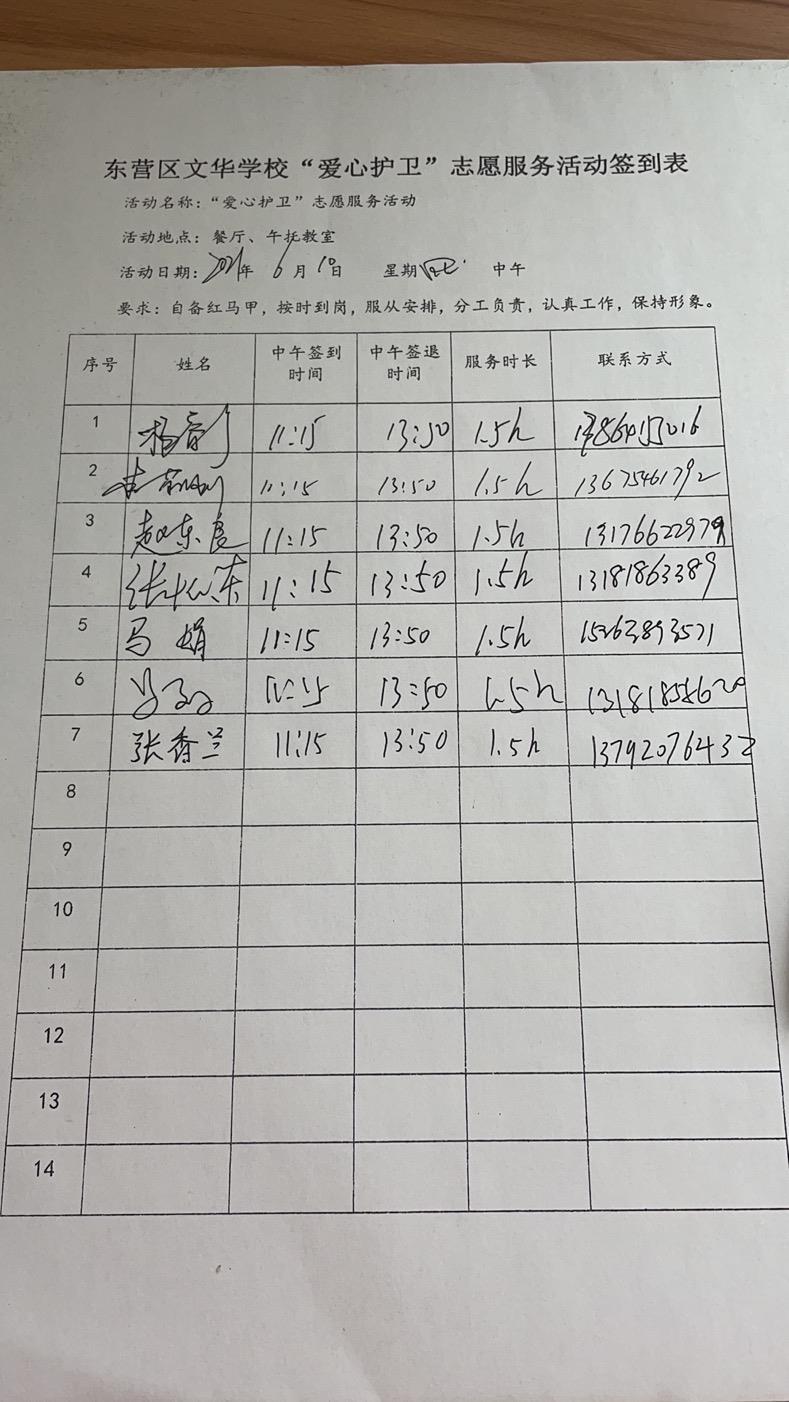 东营区文华学校“爱心护卫”志愿服务活动签到表
活动名称：“爱心护卫”志愿服务活动
活动地点：餐厅、午托教室
活动日期：2021年 6月10日 星期四 中午
要求：自备红马甲，按时到岗，服从安排，分工负责，认真工作，保持形象。
序号 姓名 中午签到时间 中午签退时间 服务时长 联系方式
1 11:15 13:50 1.5h
2 11:15 13:50 1.5h 13675461792
3 赵东 11:15 13:50 1.5h 13176622979
4 张 11:15 13:50 1.5h 13181863389
5 马娟 11:15 13:50 1.5h 15263893571
6 11:15 13:50 1.5h
7 张香兰 11:15 13:50 1.5h 13792076432
8
9
10
11
12
13
14